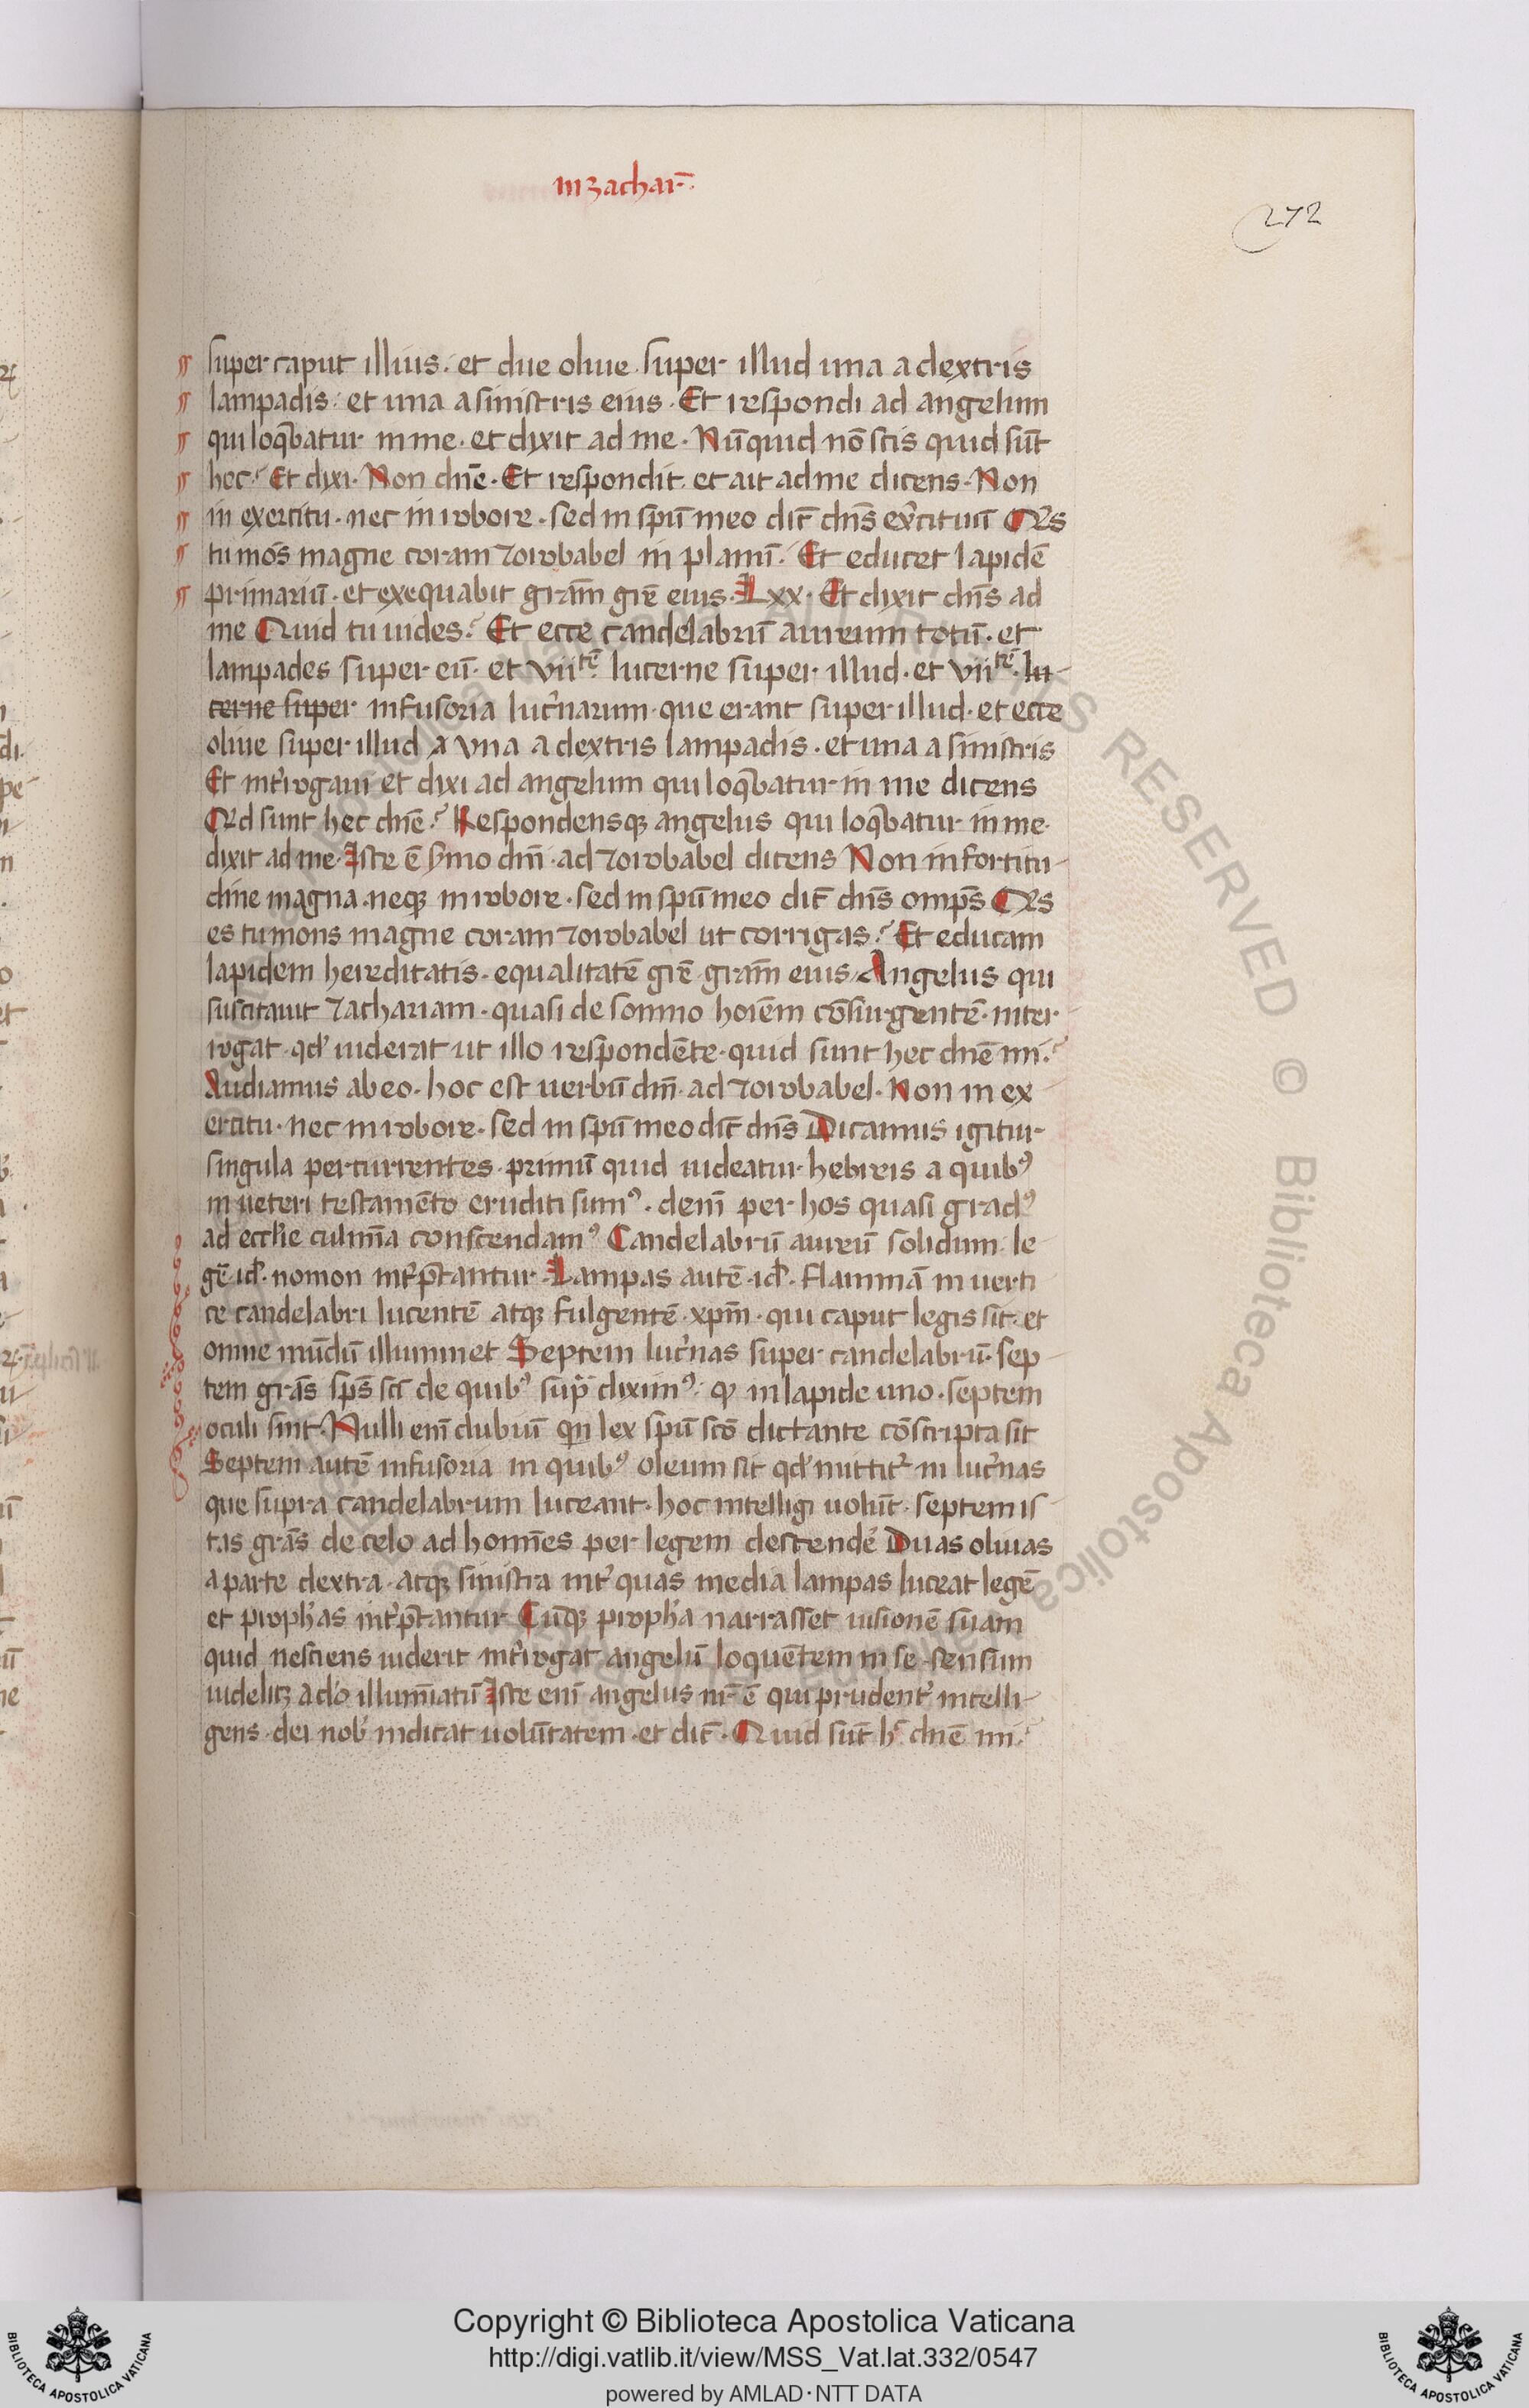 in zachar̄.
272
super caput illius. et due oliue super illud una a dextris
lampadis. et una a sinistris eius. Et respondi ad angelum
qui loq̄batur in me. et dixit ad me. Nūquid nō scis quid sūt
hec? Et dixi. Non dn̄e. Et respondit et ait ad me dicens. Non
in exercitu. nec in robore. sed in spū meo dic̄ dn̄s ex̾cituū Q̾s
tu mōs magne coram zorobabel in planū. Et educet lapidē
primariū. et exequabit gr̄am gr̄e eius. Lxx. Et dixit dn̄s ad
me Quid tu uides? Et ecce candelabrū aureum totū. et
lampades super eū. et viitē lucerne super illud. et viitē. lu
cerne super infusoria luc̾narum. que erant super illud. et ecce
oliue super illud a una a dextris lampadis. et una a sinistris
Et int̾rogaui et dixi ad angelum qui loq̄batur in me dicens
Qid sunt hec dn̄e? Respondensq; angelus qui loq̄batur in me.
dixit ad me. Iste ē s̾mo dn̄i. ad zorobabel dicens Non in fortitu
dine magna. neq; in robore. sed in spū meo dic̄ dn̄s omp̄s Q̾s
es tu mons magne coram zorobabel ut corrigas? Et educam
lapidem hereditatis. equalitatē gr̄e gr̄am eius. Angelus qui
suscitauit zachariam. quasi de somno hoīem cōsurgentē. inter
rogat. qd̾ uiderat ut illo respondēte. quid sunt hec dn̄e mi?
Audiamus ab eo. hoc est uerbū dn̄i. ad zorobabel. Non in ex
ercitu. nec in robore. sed in spū meo dic̄ dn̄s Dicamus igitur
singula percurrentes. primū quid uideatur hebreis a quibꝰ
in ueteri testamēto eruditi sumꝰ. dein̄ per hos quasi gradꝰ
ad eccl̾ie culmīa conscendamꝰ Candelabrū aureū solidum. le
gē. id̾. nomon int̾p̄tantur. Lampas autē. id̾. flammā in uerti
ce candelabri lucentē atq; fulgentē. xp̄m. qui caput legis sit. et
omne mūdū illuminet Septem luc̾nas super candelabrū. sep
tem gr̄as sp̄s sc̄i de quibꝰ sup̄ diximꝰ. ꝙ in lapide uno. septem
oculi sint. Nulli enī dubiū qin lex spū sc̄o dictante cōscripta sit
Septem autē infusoria in quibꝰ oleum sit qd̾ mittit̾ in luc̾nas
que supra candelabrum luceant. hoc intelligi uolūt. septem is
tas gr̄as de celo ad homīes per legem descendē Duas oliuas
a parte dextra. atq; sinistra int̾ quas media lampas luceat legē
et proph̾as int̾p̄tantur Cūq; proph̾a narrasset uisionē suam
quid nesciens uiderit int̾rogat angelū loquētem in se. sensum
uidelicꝫ a dō illumīatū Iste enī angelus nr̄ ē qui prudent̾ intelli
gens. dei nob̾ indicat uolūtatem. et dic̄. Quid sūt h̾ dn̄e mi?
Copyright © Biblioteca Apostolica Vaticana
http://digi.vatlib.it/view/MSS_Vat.lat.332/0547
powered by AMLAD・NTT DATA
BIBLIOTECA APOSTOLICA VATICANA
BIBLIOTECA APOSTOLICA VATICANA